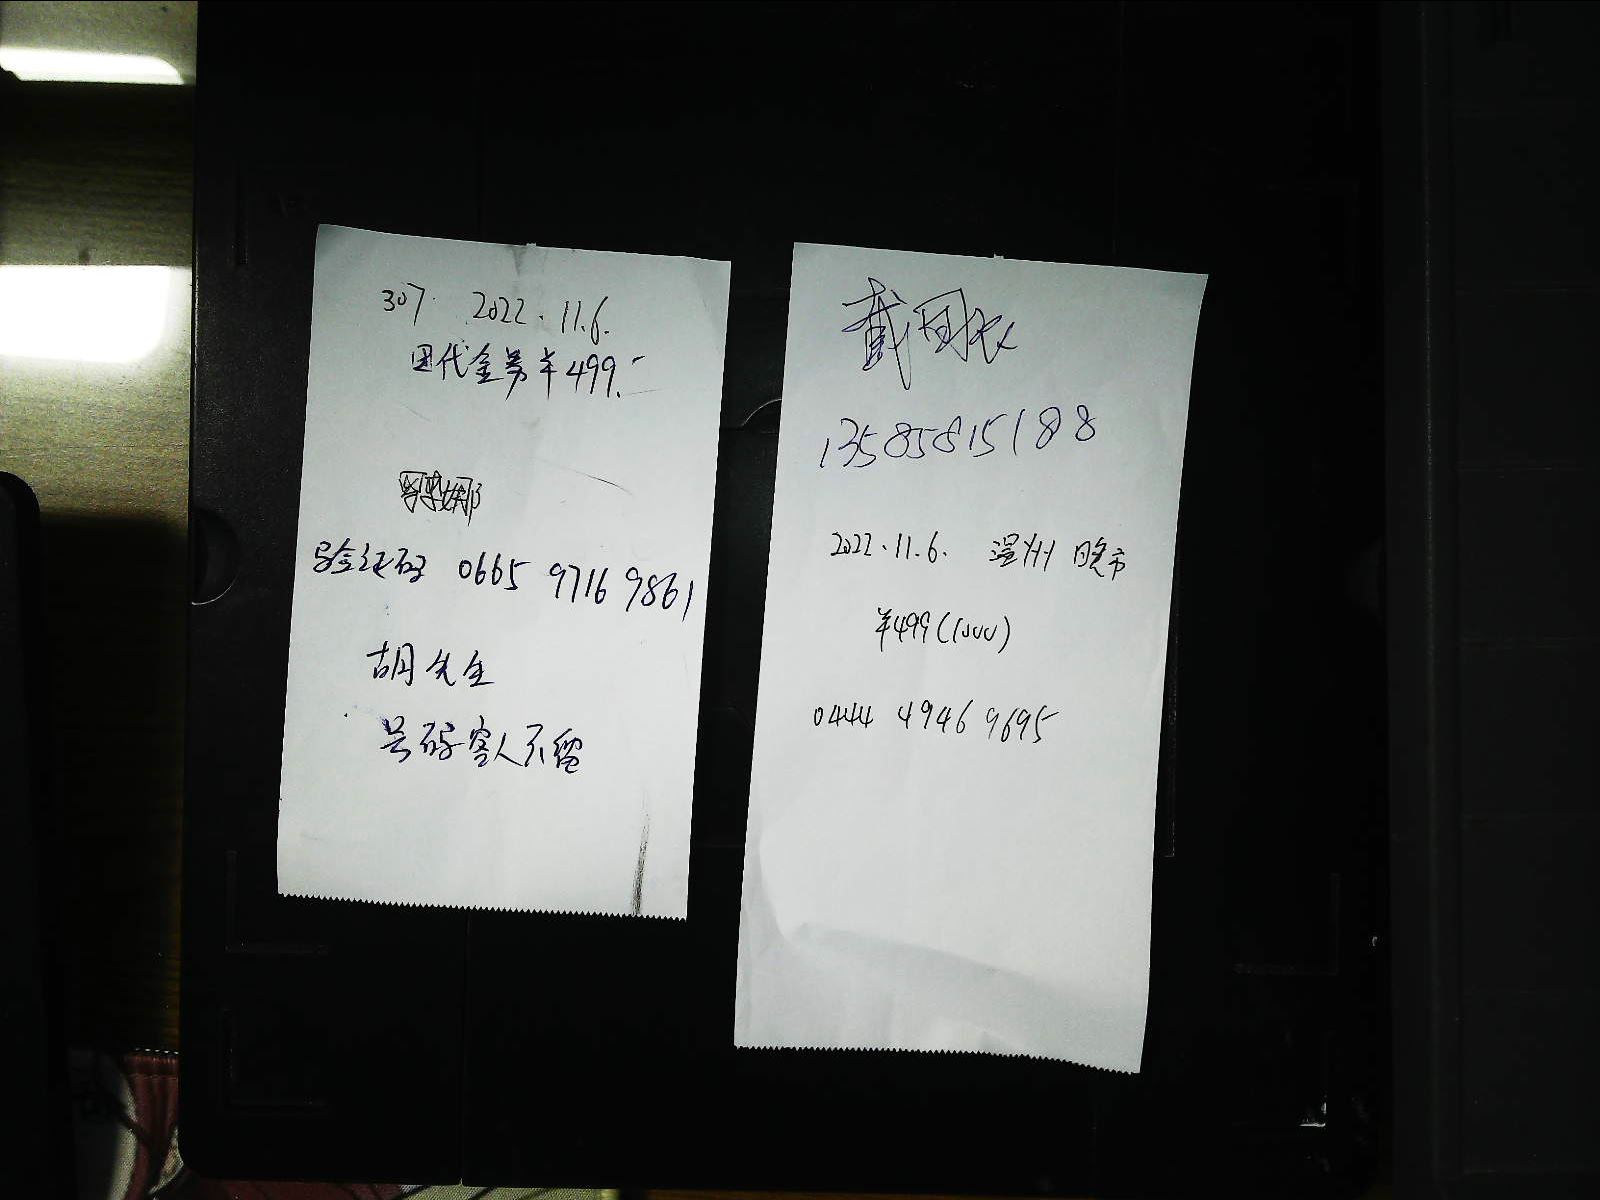 307. 2022.11.6.
团代金券¥499.-
娜
验证码 0665 9716 9861
胡先生
号码客人不留
戴国
13585815188
2022.11.6. 温州 晚市
¥499(1000)
0444 4946 9695